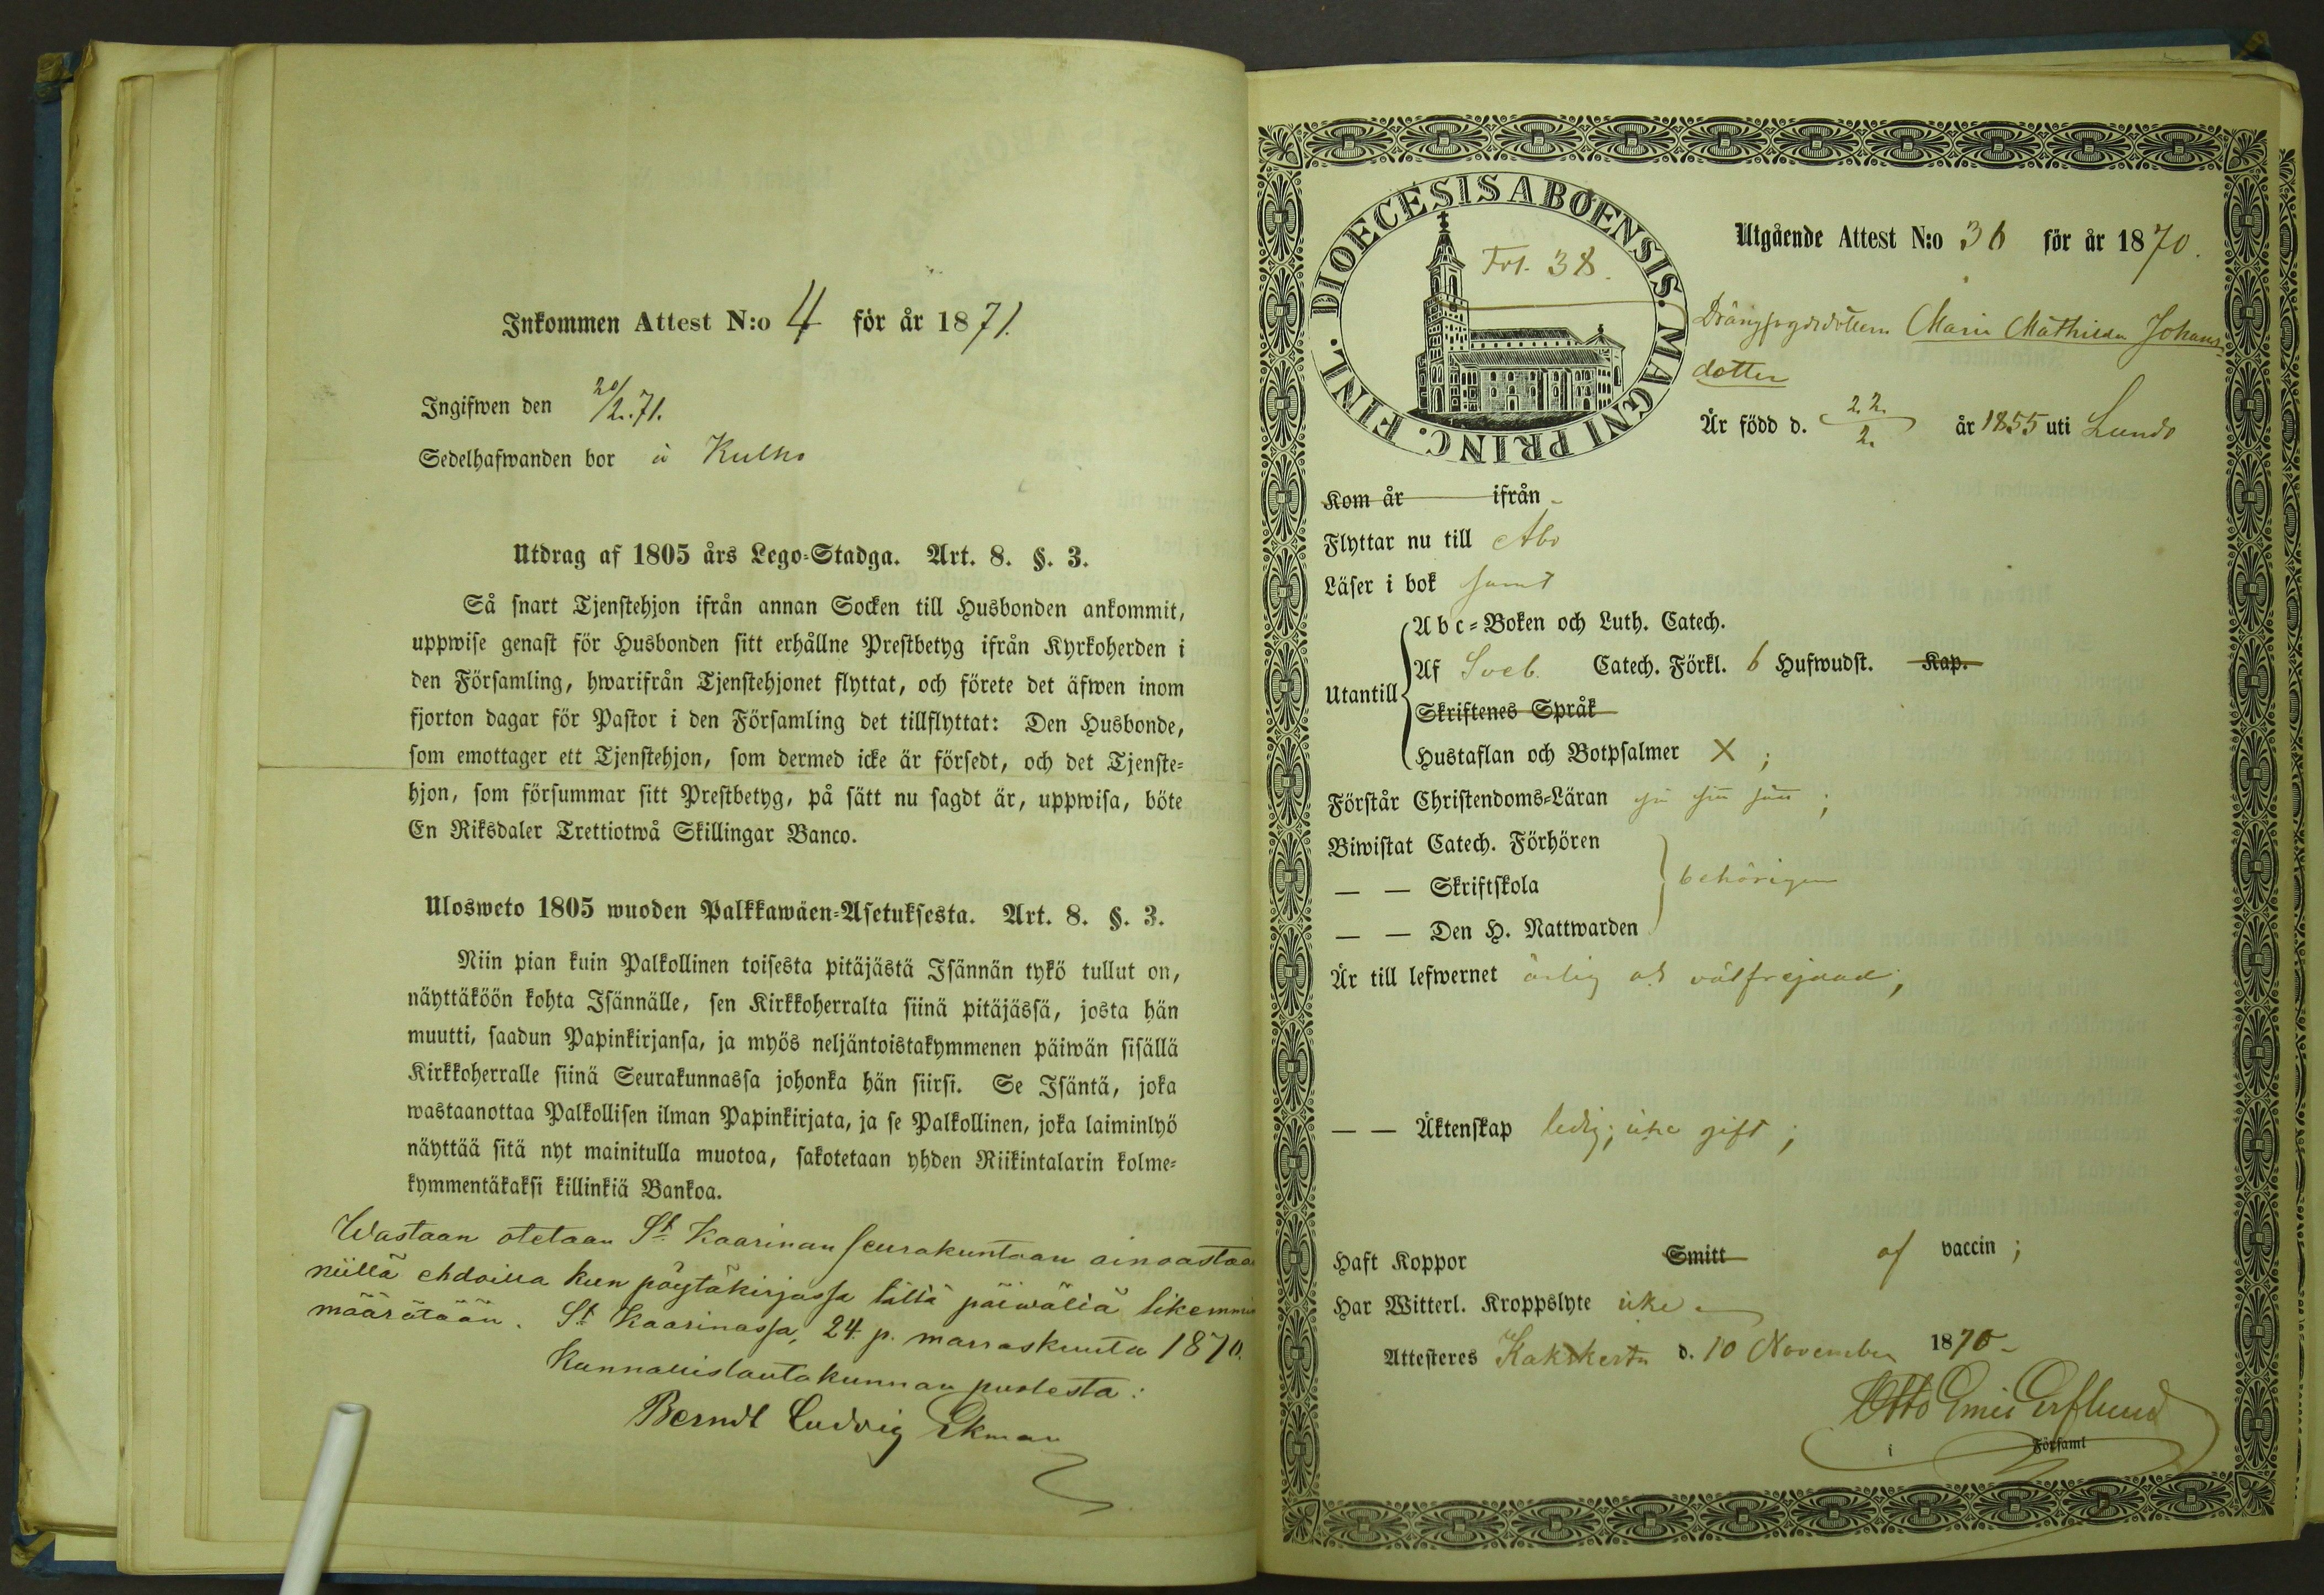 Inkommen Attest N:o 4 för år 1871.
Ingifwen den 20/2.71.
Sedelhafwanden bor å Kulho
Utdrag af 1805 års Lego-Stadga. Art. 8. §. 3.
Så snart Tjenstehjon ifrån annan Socken till Husbonden ankommit,
uppwise genast för Husbonden sitt erhållne Prestbetyg ifrån Kyrkoherden i
den Församling, hwarifrån Tjenstehjonet flyttat, och förete det äfwen inom
fjorton dagar för Pastor i den Församling det tillflyttat: Den Husbonde,
som emottager ett Tjenstehjon, som dermed icke är försedt, och det Tjenste-
hjon, som försummar sitt Prestbetyg, på sätt nu sagdt är, uppwisa, böte
En Riksdaler Trettiotwå Skillingar Banco.
Ulosweto 1805 wuoden Palkkawäen-Asetuksesta. Art. 8. §. 3.
Niin pian kuin Palkollinen toisesta pitäjästä Isännän tykö tullut on,
näyttäköön kohta Isännälle, sen Kirkkoherralta siinä pitäjässä, josta hän
muutti, saadun Papinkirjansa, ja myös neljäntoistakymmenen päiwän sisällä
Kirkkoherralle siinä Seurakunnassa johonka hän siirsi. Se Isäntä, joka
wastaanottaa Palkollisen ilman Papinkirjata, ja se Palkollinen, joka laiminlyö
näyttää sitä nyt mainitulla muotoa, sakotetaan yhden Riikintalarin kolme-
kymmentäkaksi killinkiä Bankoa.
Wastaan otetaan St Kaarinan seurakuntaan ainoastaa
niillä ehdoilla kun pöytäkirjassa tältä päiwältä likemmi
määrätään. St Kaarinassa, 24 p. marraskuuta 1870.
Kunnallislautakunnan puolesta:
Berndt Ludvig Ekman
DIOECESIS ABOENSIS. MAGNI PRINC. FINL.
Fol. 38.
Utgående Attest N:o 36 för år 1870.
Maria Mathilda Johans-
dotter
Är född d. 22/2. år 1855 uti Lundo
Kom år ifrån
Flyttar nu till Åbo
Läser i bok samt
Utantill
Abc-Boken och Luth. Catech.
Af Sveb. Catech. Förkl. 6 Hufwudst. Kap.
Skriftenes Språk
Hustaflan och Botpsalmer X ;
Förstår Christendoms-Läran
Biwistat Catech. Förhören
— — Skriftskola behörigen
— — Den H. Nattwarden
Är till lefwernet ärlig och välfrejdad;
— — Äktenskap ledig; icke gift;
Haft Koppor Smitt af vaccin ;
Har Witterl. Kroppslyte icke
Attesteres Kakskerta d. 10 November 1870
Otto Emil
i Församl